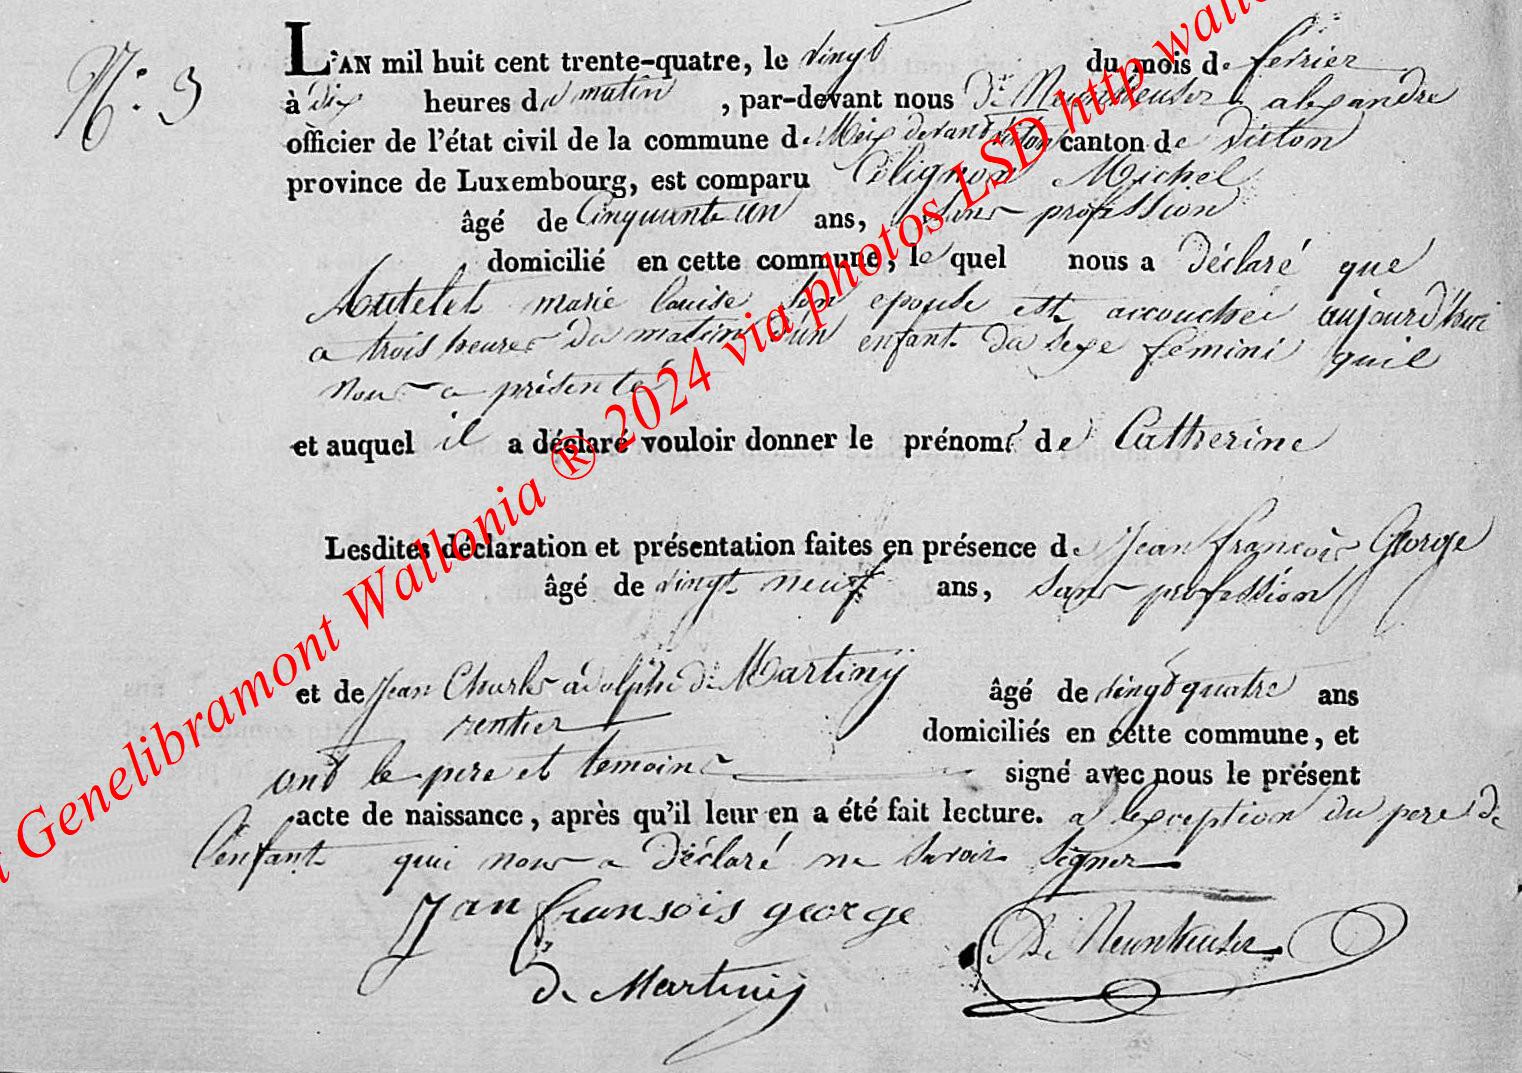 N.° 9
L'AN mil huit cent trente-quatre, le vingt du mois de fevrier
à dix heures du matin, par-devant nous De Neunheuser alexandre
officier de l'état civil de la commune de Meix devant virton canton de virton
province de Luxembourg, est comparu Colignon Michel
âgé de Cinquante un ans, sans profession
domicilié en cette commune, le quel nous a déclaré que
Autelet marie louise son epouse est accouchée aujourd'hui
a trois heures du matin d'un enfant du sexe femini quil
nous a présenté
et auquel il a déclaré vouloir donner le prénoms de Catherine
Lesdites déclaration et présentation faites en présence de Jean francois George
âgé de vingt neuf ans, sans profession
et de Jean Charles adolphe De Martiny âgé de vingt quatre ans
rentier domiciliés en cette commune, et
ont le pere et temoins signé avec nous le présent
acte de naissance, après qu'il leur en a été fait lecture. a lexception du pere de
l'enfant qui nous a déclaré ne savoir signer
Jan fransois george
De Neunheuser
de Martiny
Genelibramont Wallonia ® 2024 via photos LSD http wallo